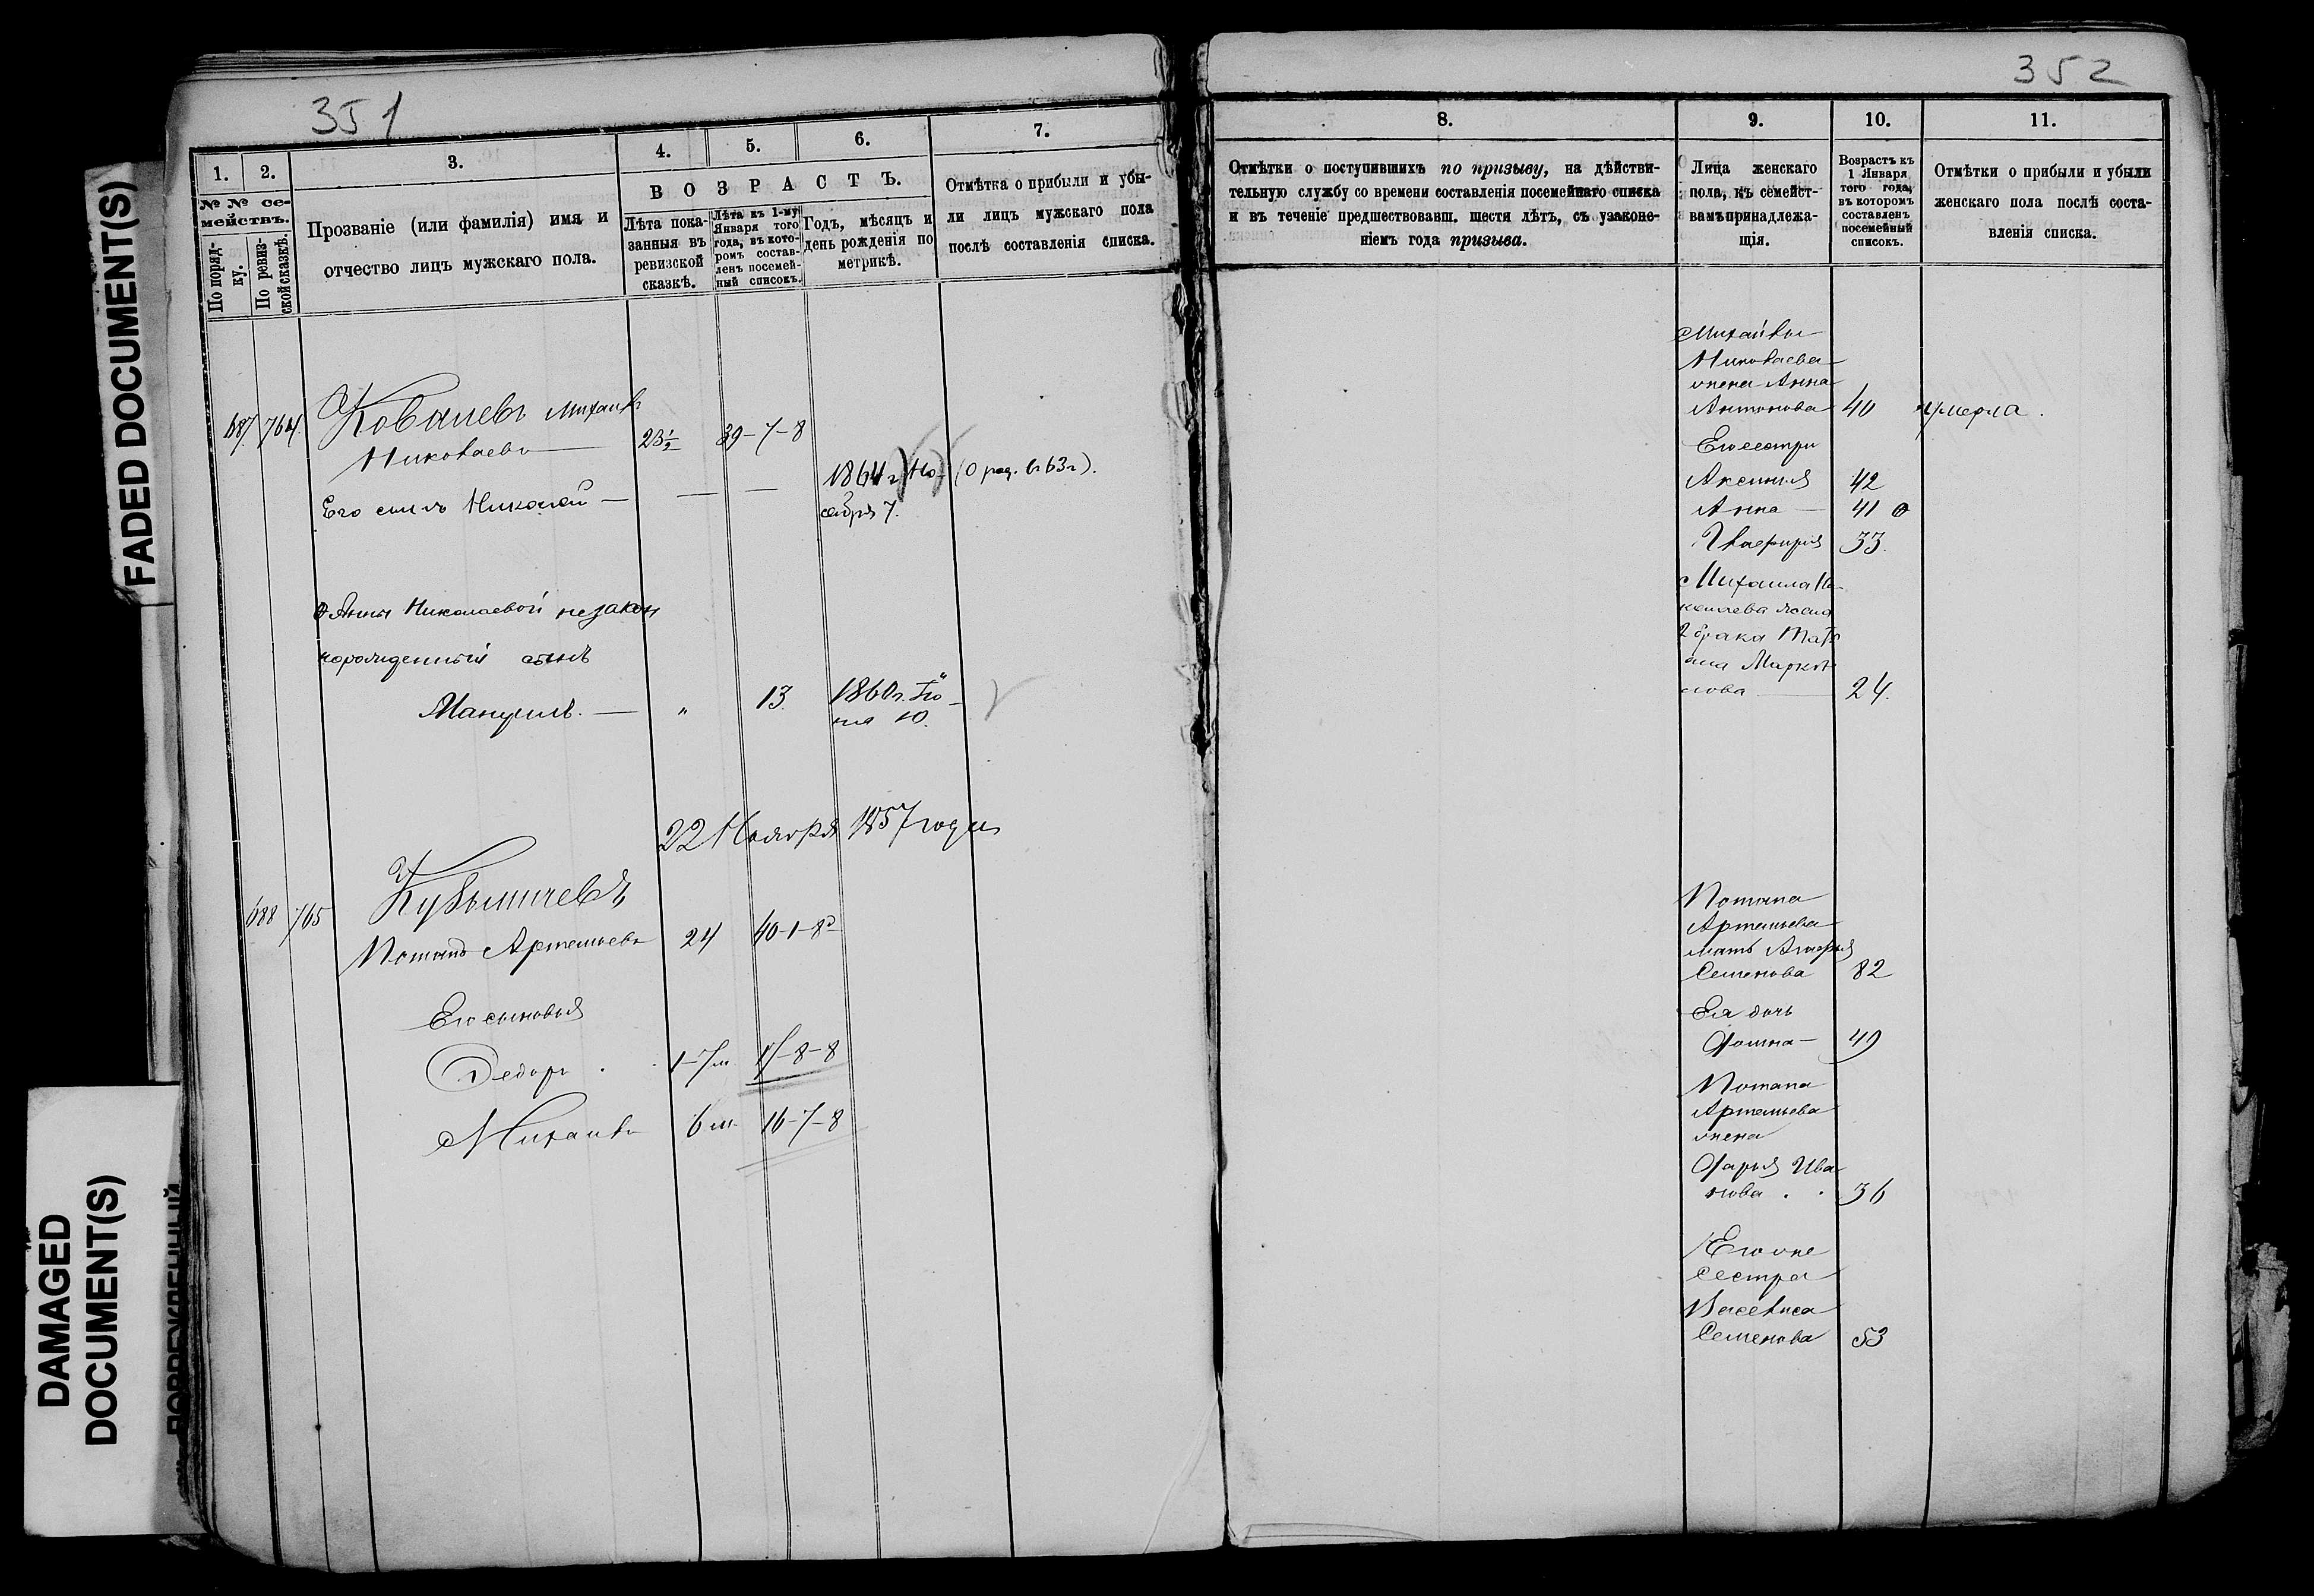 351
1.
2.
3.
4.
5.
6.
7.
№ № се-
мействъ.
По поряд-
ку.
По ревиз-
ской сказкѣ.
Прозваніе (или фамилія) имя и
отчество лицъ мужскаго пола.
В О З Р А С Т Ъ.
Лѣта пока-
занныя въ
ревизской
сказкѣ.
Лѣта къ 1-му
Января того
года, въ кото-
ромъ состав-
ленъ посемей-
ный списокъ.
Годъ, мѣсяцъ и
день рожденія по
метрикѣ.
Отмѣтка о прибыли и убы-
ли лицъ мужскаго пола
послѣ составленія списка.
687 764 Ковалевъ Михаилъ
Николаевъ 23½ 39-7-8
Его сынъ Николай — — —
1864 г Но-
ября 7.
(О род. в 63 г).
Анны Николаевой незакон
норожденный сынъ
Мануилъ. — " 13. 1860 г. Iю-
ня 10.
22 Ноября 1857 года
688 765
Потапъ Артемьевъ 24 40-1-8
Его сыновья
Федоръ . . 1-7 м. 17-8-8
Михаилъ 6 м. 16-7-8
352
8.
9.
10.
11.
Отмѣтки о поступившихъ по призыву, на дѣйстви-
тельную службу со времени составленія посемейнаго списка
и въ теченіе предшествовавш. шести лѣтъ, съ узаконе-
ніемъ года призыва.
Лица женскаго
пола, къ семейст-
вамъ принадлежа-
щія.
Возрастъ къ
1 Января
того года,
въ которомъ
составленъ
посемейный
списокъ.
Отмѣтки о прибыли и убыли
женскаго пола послѣ соста-
вленія списка.
Михайлы
Николаева
жена Анна
Антонова 40 умерла.
Его сестры
Аксинья 42
Анна — 41
Глафира 33.
Михаила Ни-
колаева жена
2 брака Тать
ана
нова — 24.
Потапа
Артемьева
мать Агафья
Семенова 82
Ея дочь
Домна — 49
Потапа
Артемьева
жена
Дарья Ива
нова . . 36
Его же
сестра
Василиса
Семенова 53
FADED DOCUMENT(S)
DAMAGED
DOCUMENT(S)